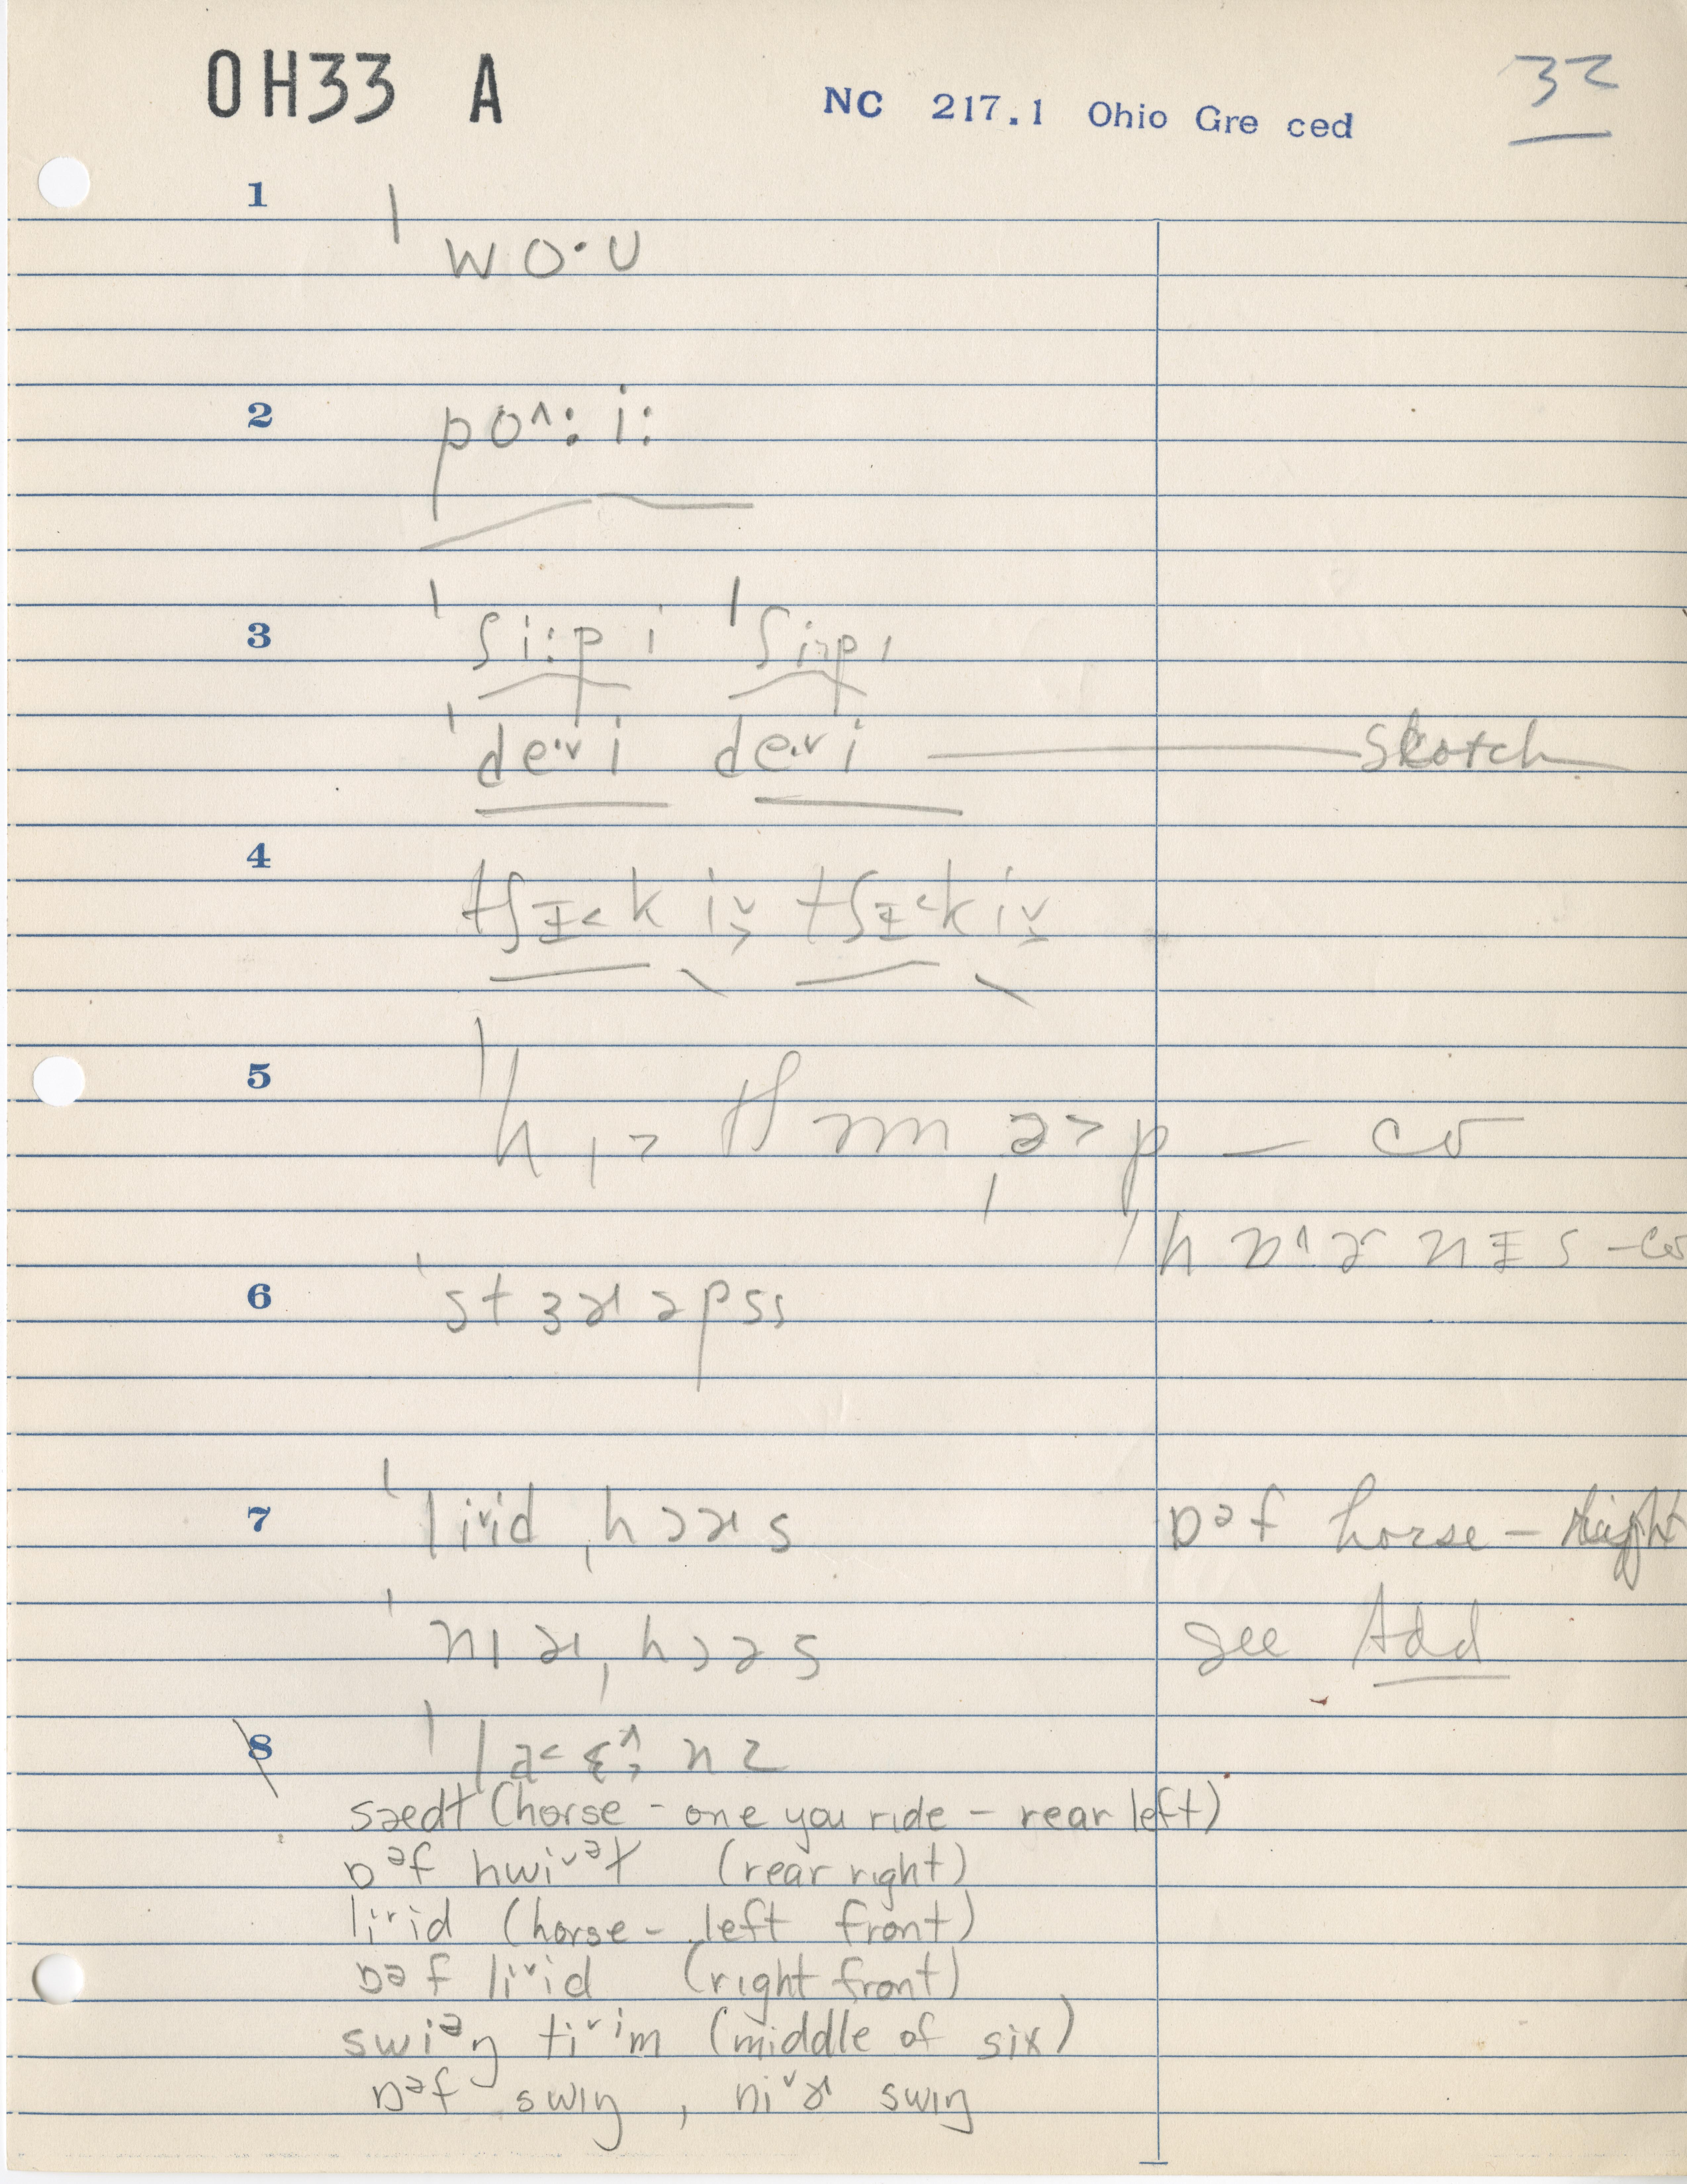 OH33 A
NC 217.1 Ohio Gre ced
32
1 ˈwo·ʊ
2 po^: i:
3 ˈʃi:pi ˈʃi˃pi
ˈde·ᵛi de·ᵛi — Skotch
4 tʃɪ˂ki˅˃ tʃɪ˂ki˅˃
5 ˈhɪ˃tʃɚm ˌə˃p — co
ˈhɒ^ɚnɪs — co
6 ˈstɜɚəpss
7 ˈliᵛid ˌhɔɚs ɒᵊf horse — Right
ˈnɪɚ ˌhɔəs see Add
8 ˈla˂ɛ^˃nz
sædt (horse - one you ride - rear left)
ɒᵊf hwiᵛᵊł (rear right)
liᵛid (horse - left front)
ɒəf liᵛid (right front)
swiᵊŋ tiᵛim (middle of six)
ɒᵊf swiŋ, niᵛɚ swiŋ